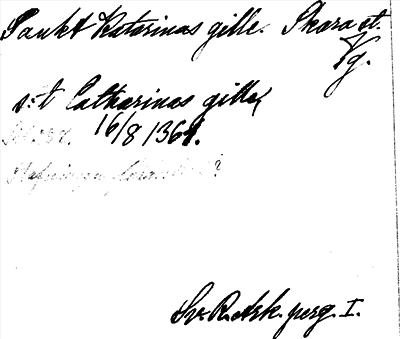 Sankt Katarinas gille. Skara st.
Vg.
s:t Catharinas gille
16/8 1369.
Sv. R. Ark. perg. I.